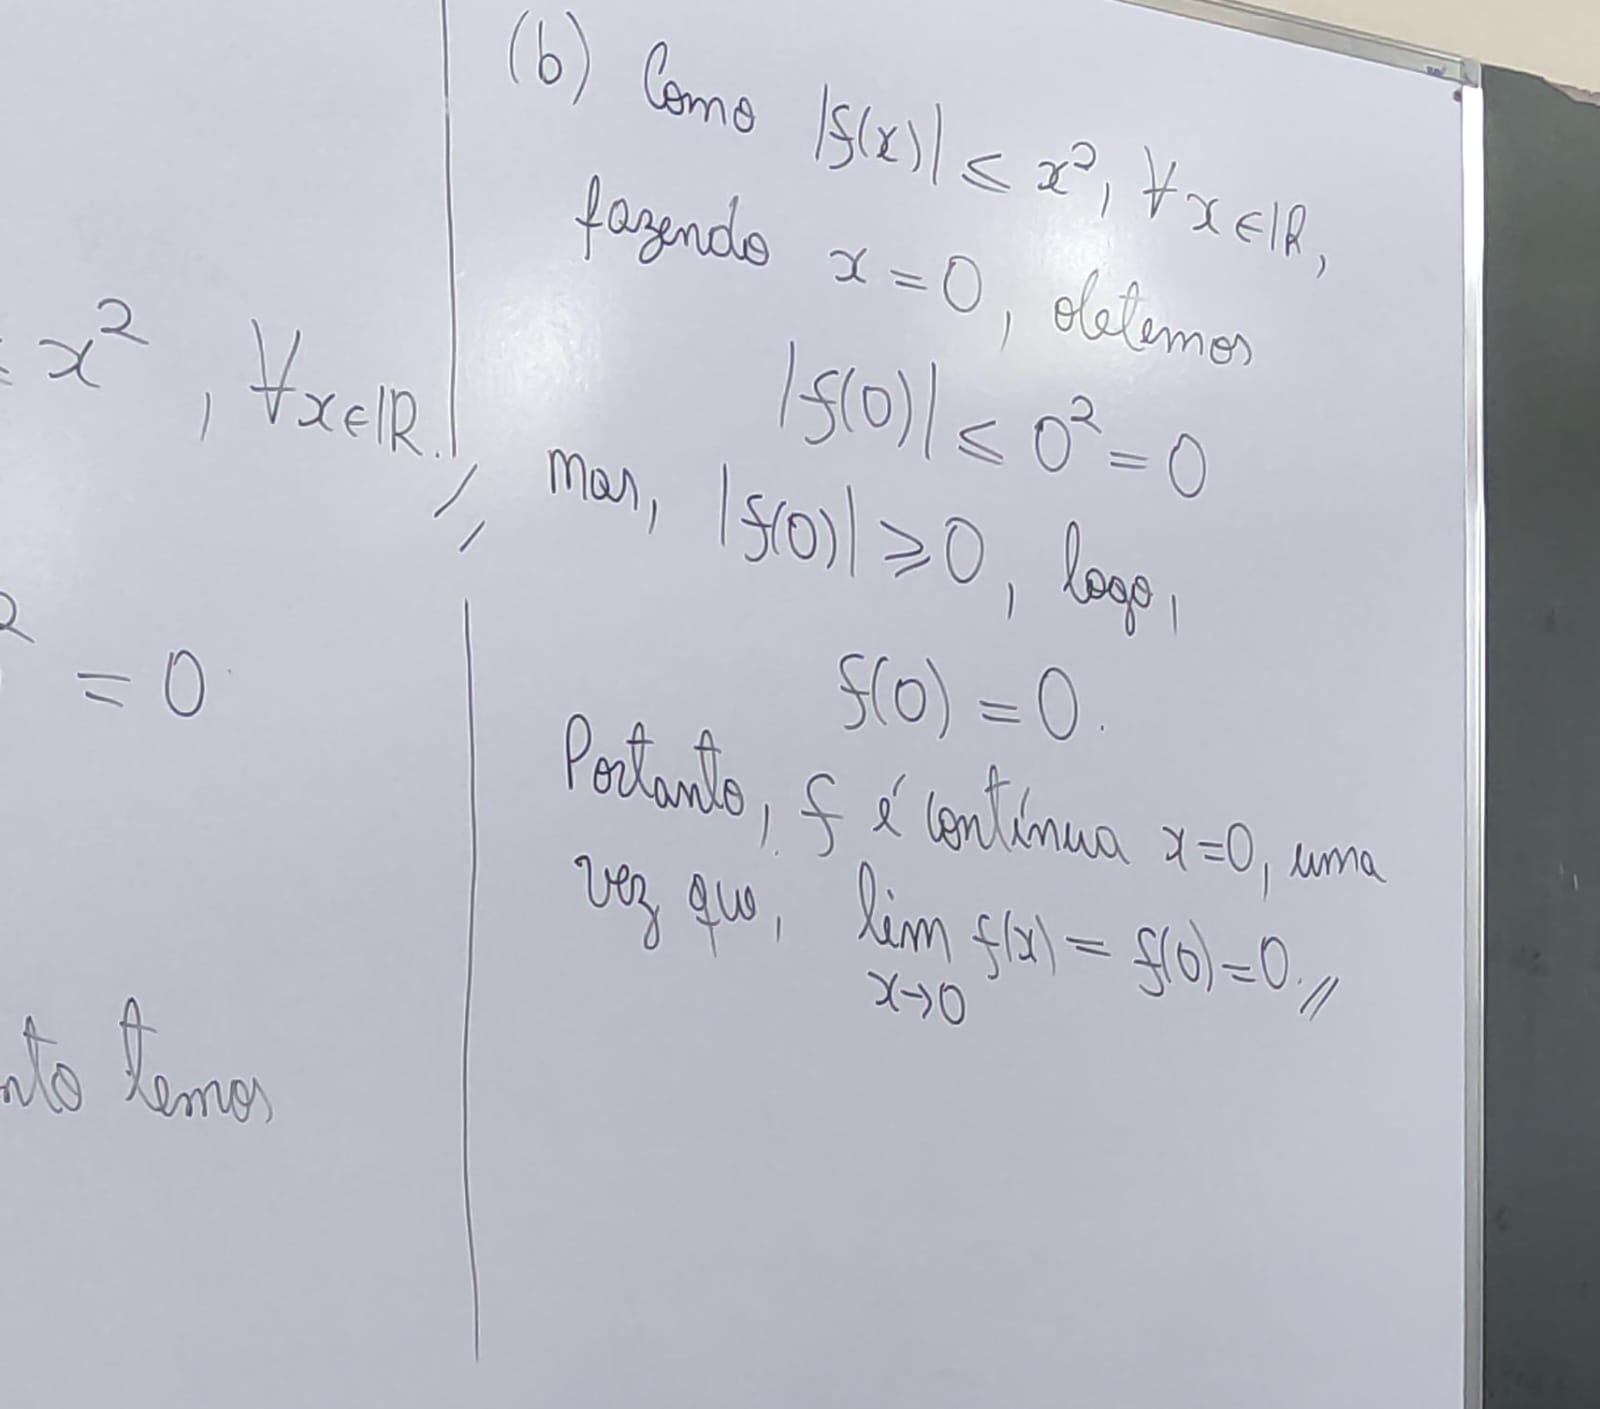 x², ∀x∈ℝ.
2
= 0
nto temos
(b) Como |f(x)| ≤ x², ∀x∈ℝ,
fazendo x = 0, obtemos
|f(0)| ≤ 0² = 0
mas, |f(0)| ≥ 0, logo,
f(0) = 0.
Portanto, f é contínua x=0, uma
vez que, lim f(x) = f(0) = 0.//
x→0